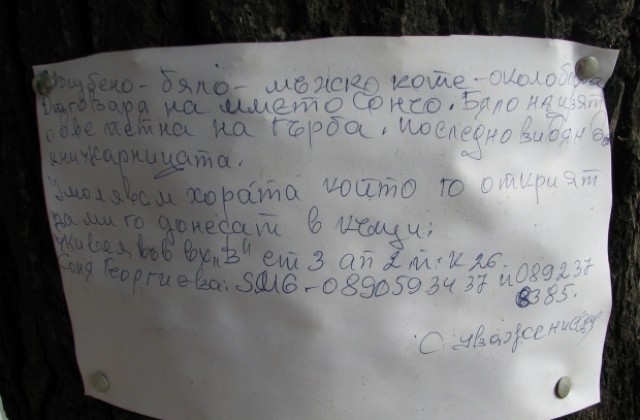 Изгубено - бяло - мъжко коте - около бл.
Отговаря на името Сончо. Бяло на
с две петна на гърба. Последно видян
книжкарницата.
Умолявам хората които го открият
да ми го донесат в къщи:
Живея във вх „В" ет 3 ап 2 ж.к 26.
Соня Георгиева. - 0890593437 и 089237
8385.
С уважение